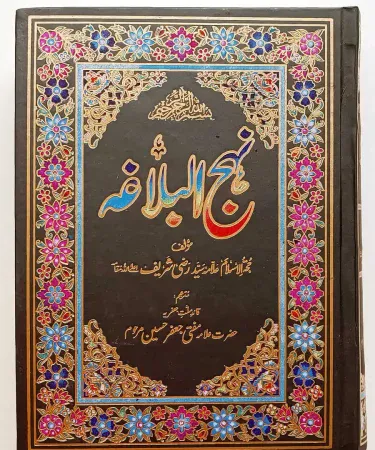 بسم الله الرحمن الرحیم
نهج البلاغه
مؤلف
حجۃ الاسلام علامہ سید رضی شریف
مترجم
قائد ملت جعفریہ
حضرت علامہ مفتی جعفر حسین مرحوم